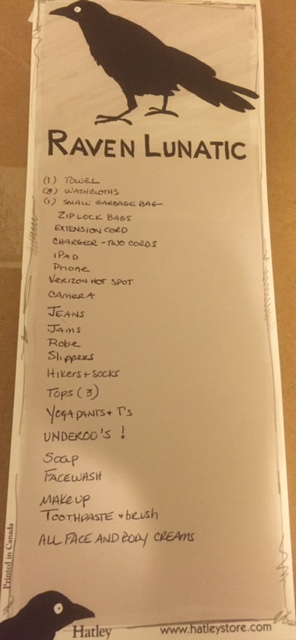 RAVEN LUNATIC
(1) TOWEL
(2) WASHCLOTHS
(1) SMALL GARBAGE BAG
ZIPLOCK BAGS
EXTENSION CORD
CHARGER - TWO CORDS
iPAD
Phone
VERIZON HOT SPOT
CAMERA
JEANS
Jams
Robe
Slippers
HIKERS + SOCKS
TOPS (3)
YOGA PANTS + T'S
UNDEROO'S !
SOAP
FACEWASH
MAKEUP
TOOTHPASTE + brush
ALL FACE AND BODY CREAMS
Printed in Canada
Hatley
www.hatleystore.com